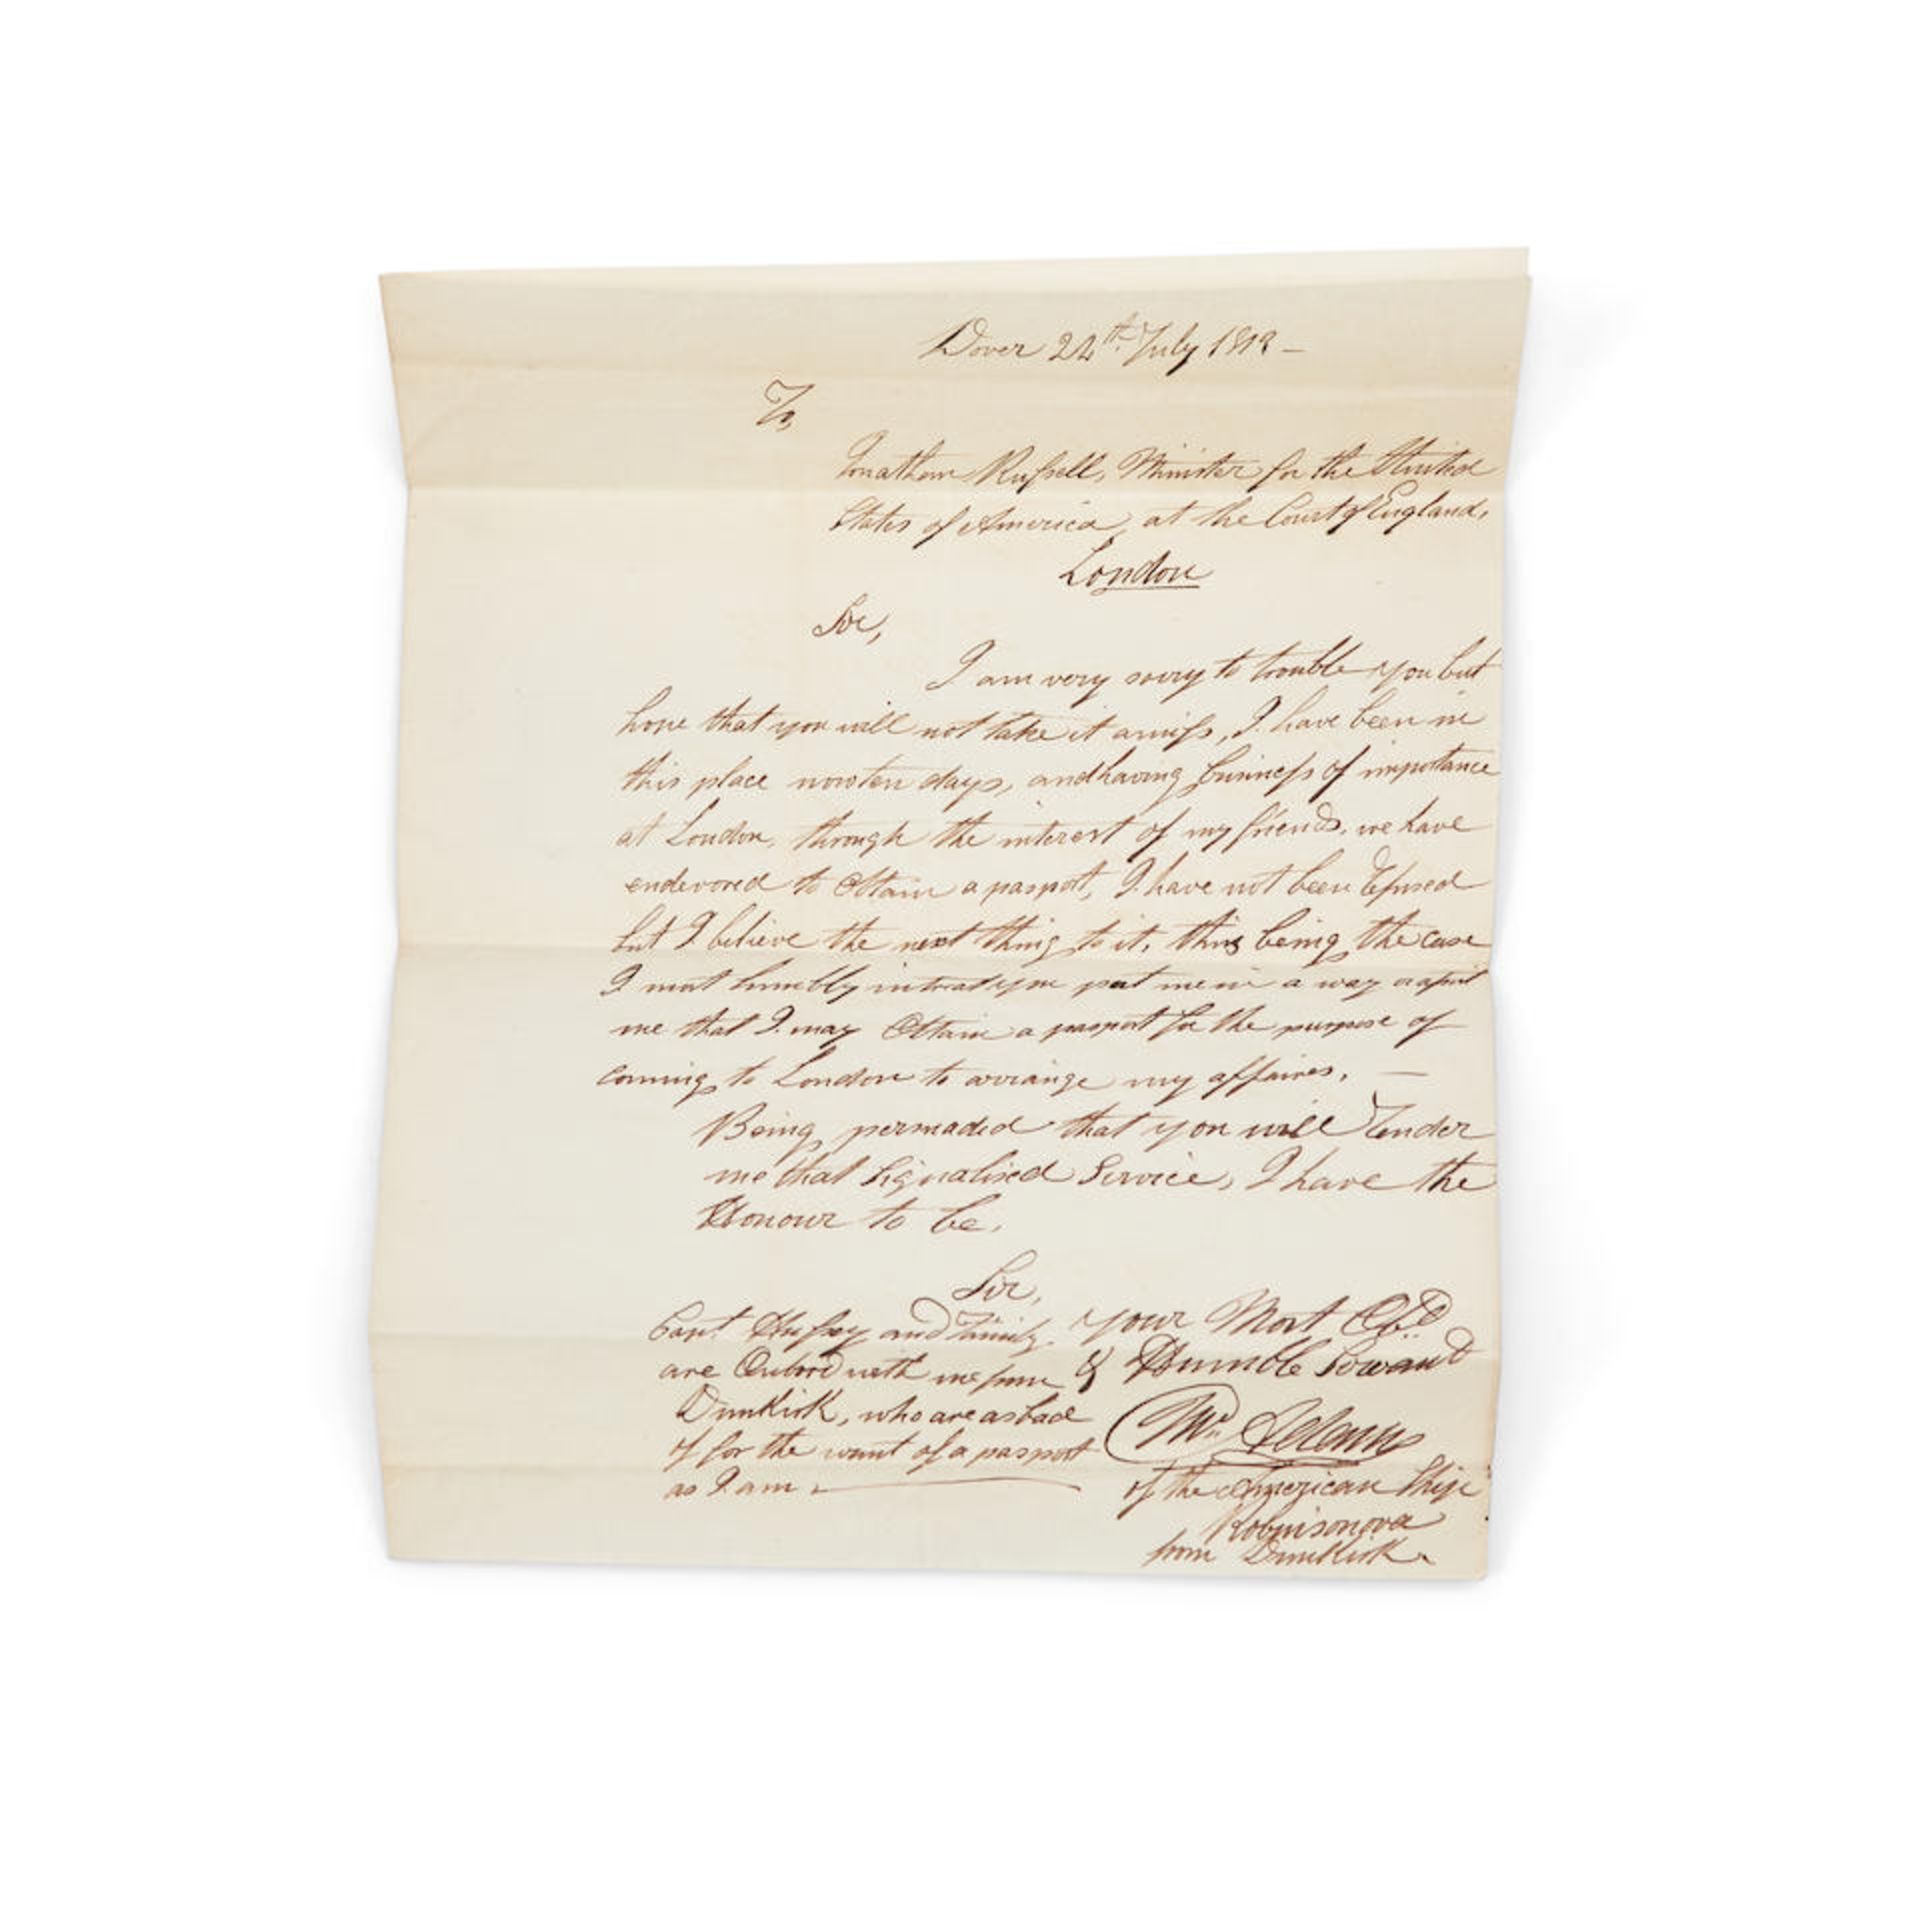 Dover 24th July 1812 -
To
Jonathan Russell, Minister for the United
States of America, at the Court of England,
London
Sir,
I am very sorry to trouble you but
hope that you will not take it amiss, I have been in
this place now ten days, and having business of importance
at London, through the interest of my friends, we have
endevored to Obtain a pasport, I have not been refused
but I believe the next thing to it, this being the case
I most humbly intreat you put me in a way or assist
me that I may Obtain a pasport for the purpose of
coming to London to arrange my affaires. —
Being persuaded that you will Render
me that Signalised Service, I have the
Honour to be,
Sir,
your Most Obd.
& Humble Servant
Wm.
of the American Ship
Robinsonova
from Dunkirk
Capt. Hussey and Family
are with me from
Dunkirk, who are as bad
of for the want of a pasport
as I am.